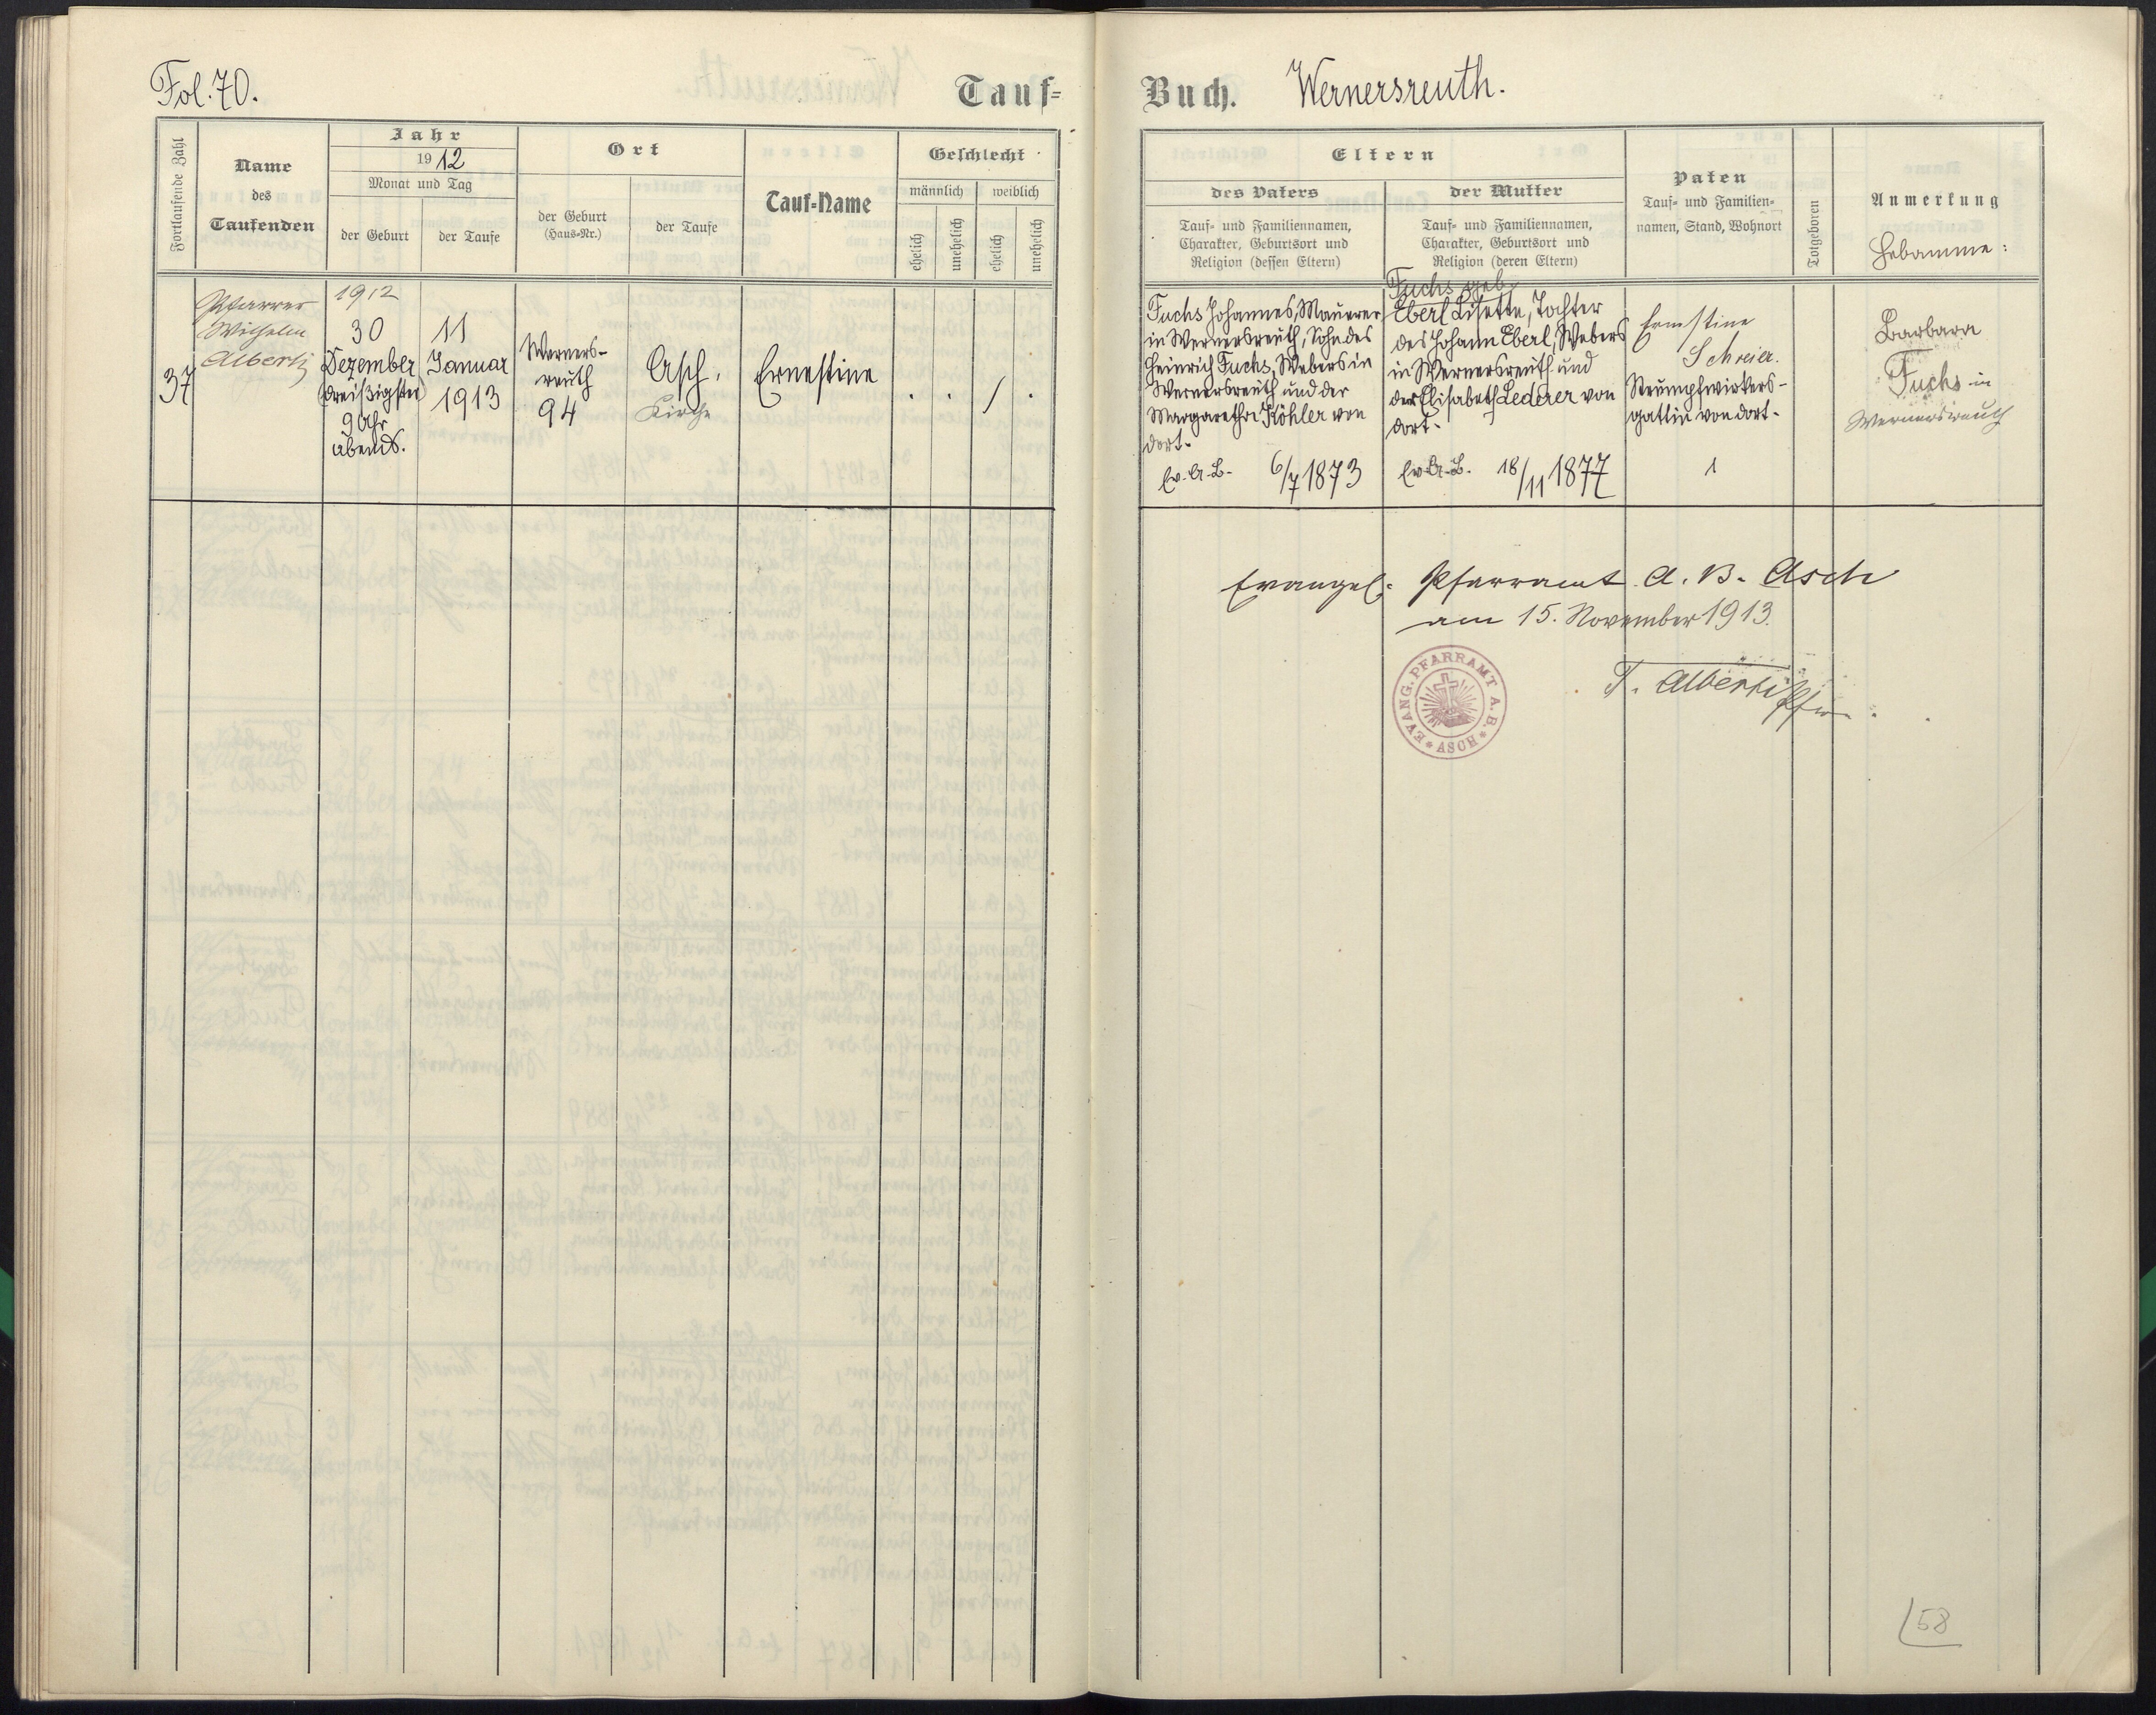 Fol. 70.
Tauf=
Buch. Wernersreuth.
Fortlaufende Zahl
Name
des
Taufenden
Jahr
1912
Monat und Tag
der Geburt
der Taufe
Ort
der Geburt
(Haus-Nr.)
der Taufe
Tauf-Name
Geschlecht
männlich
weiblich
ehelich
unehelich
ehelich
unehelich
Eltern
des Vaters
Tauf- und Familiennamen,
Charakter, Geburtsort und
Religion (dessen Eltern)
der Mutter
Tauf- und Familiennamen,
Charakter, Geburtsort und
Religion (deren Eltern)
Paten
Tauf- und Familien-
namen, Stand, Wohnort
Totgeboren
Anmerkung
Hebamme:
37
Pfarrer
Wilhelm
Alberti
1912
30
Dezember
(dreißigster)
9 Uhr
abends.
11
Januar
1913
Werners-
reuth
94
Asch.
Kirche
Ernestine
. . / .
Fuchs Johannes, Maurer
in Wernersreuth, Sohn des
Heinrich Fuchs, Webers in
Wernersreuth und der
Margaretha Köhler von
dort.
Ev. A. B. 6/7 1873
Fuchs geb.
Eberl Lisette, Tochter
des Johann Eberl, Webers
in Wernersreuth und
der Elisabeth Lederer von
dort.
Ev. A. B. 18/11 1877
Ernestine
Schreier.
Strumpfwirkers-
gattin von dort.
1
Barbara
Fuchs in
Wernersreuth
Evangel. Pfarramt A. B. Asch
am 15. November 1913.
EVANG. PFARRAMT A. B.
* ASCH *
T. Alberti Pfr.
58